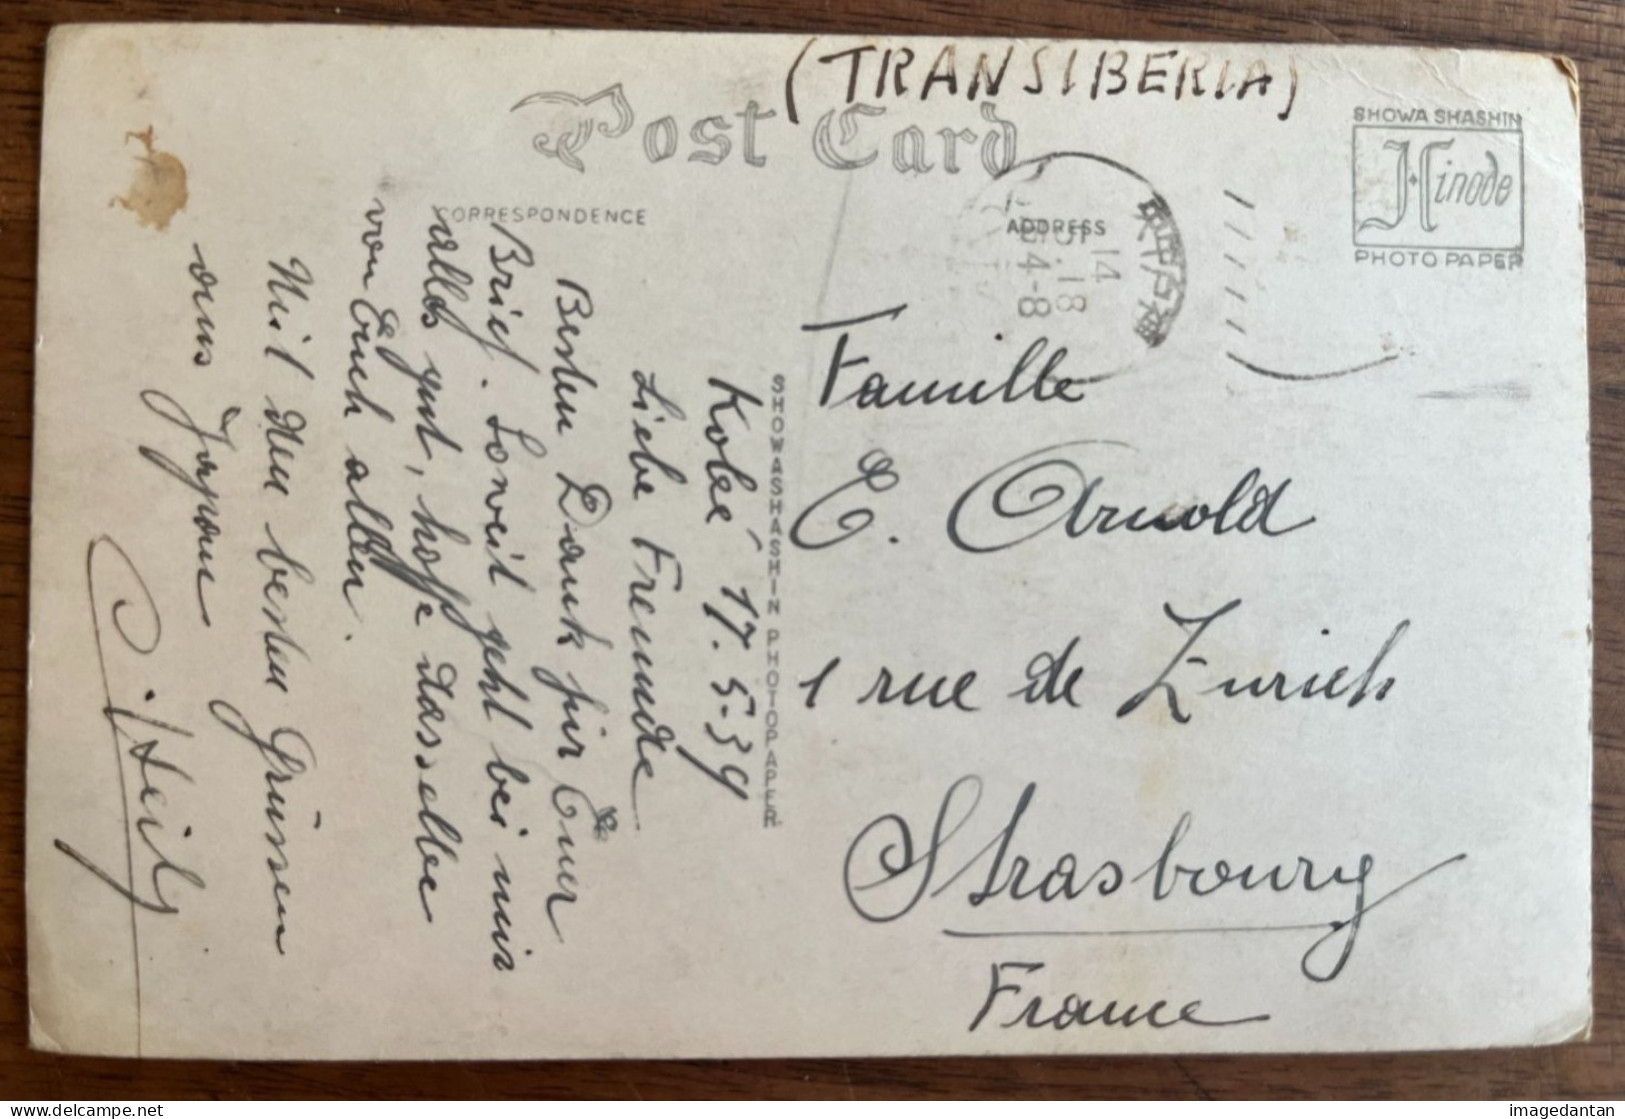 (TRANSIBERIA)
Post Card
SHOWA SHASHIN
Hinode
PHOTO PAPER
CORRESPONDENCE
ADDRESS
14
.18
4-8
SHOWA SHASHIN PHOTO PAPER
Kobé 17.5-39
Liebe Freunde
Besten Dank für Euer
Brief. Soweit geht bei mir
alles gut, hoffe dasselbe
von Euch allen.
Mit den besten Grüssen
aus Japan
Famille
E. Arnold
1 rue de Zurich
Strasbourg
France
delcampe.net
imagedantan